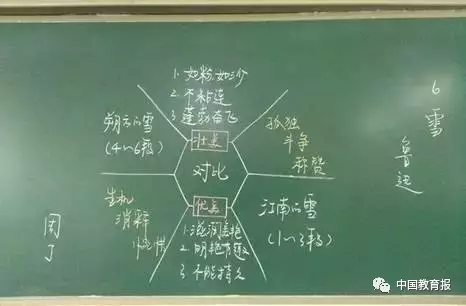 6
雪
鲁迅
1. 如粉、如沙
2. 不粘连
3. 蓬勃奋飞
朔方的雪
(4~6段)
壮美
孤独
斗争
称赞
对比
生机
消释
优美
江南的雪
(1~3段)
1. 滋润美艳
2. 明艳有趣
3. 不能持久
中国教育报